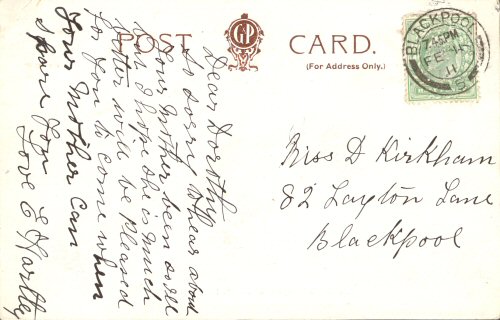 POST CARD.
GP
(For Address Only.)
BLACKPOOL
7.45 PM
FE 14
11
S
Dear Dorothy
So sorry to hear about
your Mother been so ill
but I hope she is much
better will be pleased
for you to come when
your Mother can
spare you
Love E Hartley
Miss D Kirkham
82 Layton Lane
Blackpool